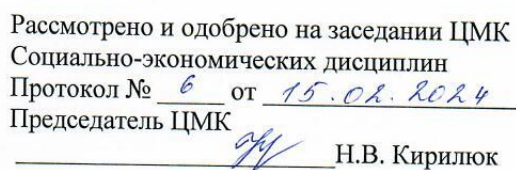 Рассмотрено и одобрено на заседании ЦМК
Социально-экономических дисциплин
Протокол № 6 от 15.02.2024
Председатель ЦМК
Н.В. Кирилюк